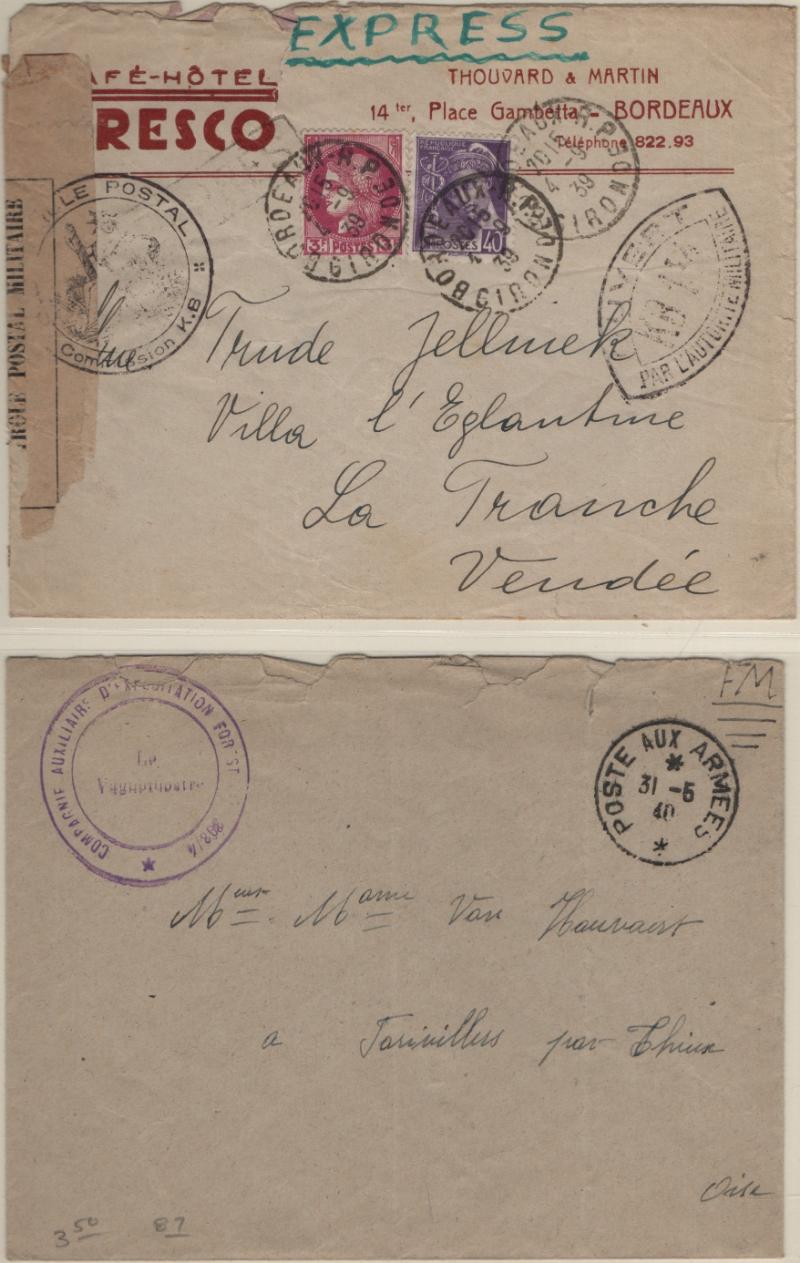 EXPRESS
AFÉ-HÔTEL
RESCO
THOUVARD & MARTIN
14 ter, Place Gambetta - BORDEAUX
Téléphone 822.93
BORDEAUX-R.P.
4 -9 39
GIRONDE
3F POSTES
REPUBLIQUE FRANÇAISE
POSTES 40
BORDEAUX R.P.
39
GIRONDE
BORDEAUX-R.P.
4 -9 39
GIRONDE
LE POSTAL
Commission K.B
RÔLE POSTAL MILITAIRE
OUVERT
PAR L'AUTORITÉ MILITAIRE
Trude Jellinek
Villa l'Eglantine
La Tranche
Vendée
COMPAGNIE AUXILIAIRE D'EXPLOITATION FOR ST
Le
Vaguemestre
FM
POSTE AUX ARMEES
31 -5
40
Meur Mame Van
a par Thieux
Oise
3 50 87